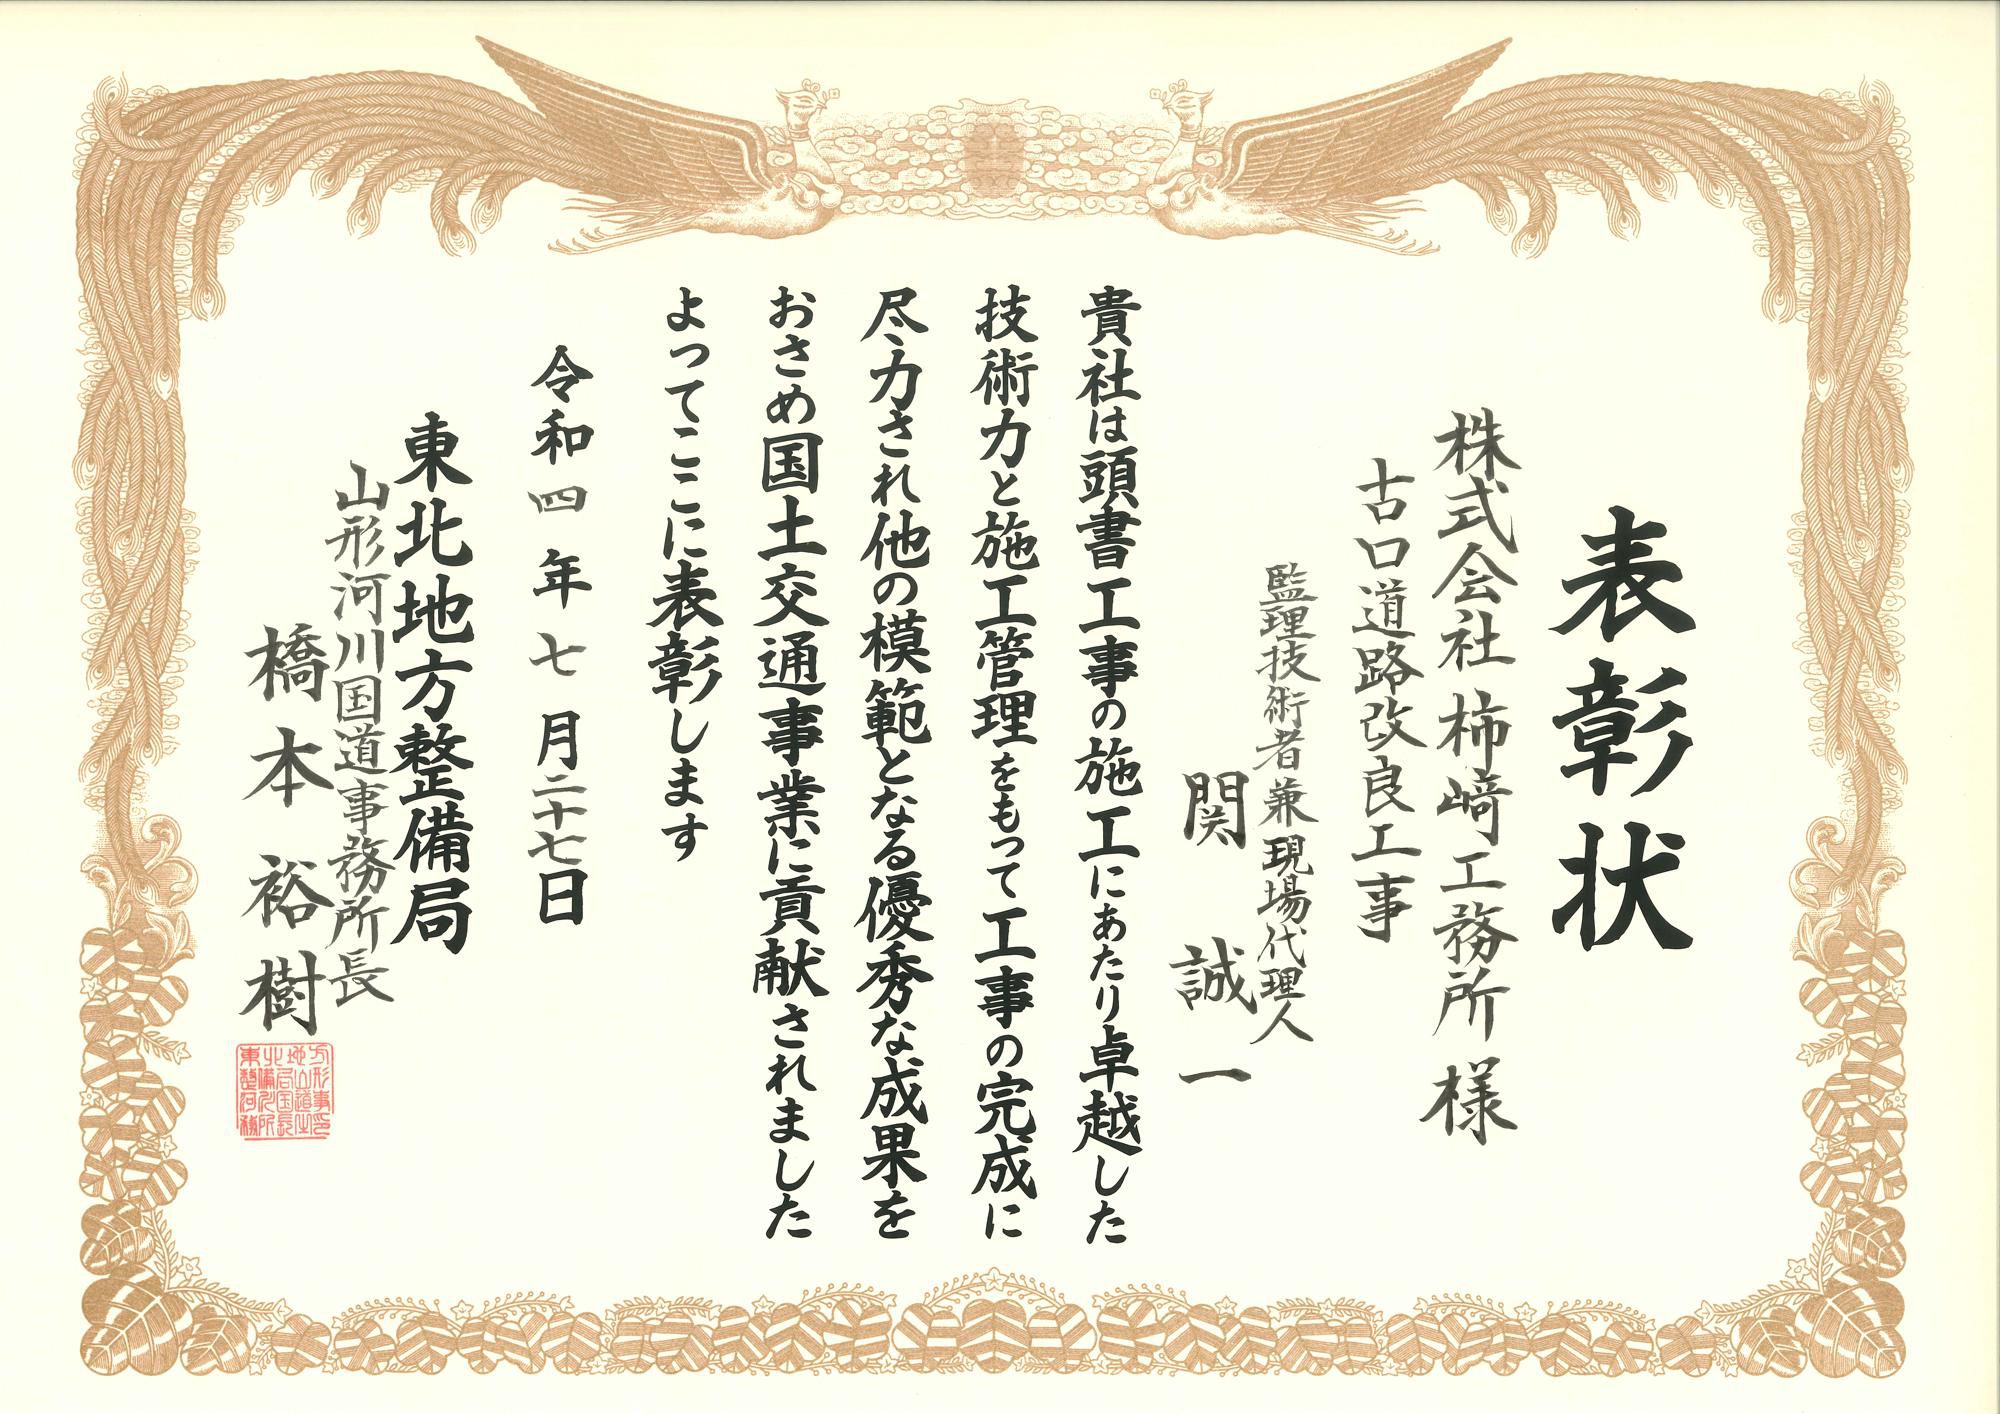 表彰状
株式会社柿﨑工務所 様
古口道路改良工事
監理技術者兼現場代理人
関 誠一
貴社は頭書工事の施工にあたり卓越した
技術力と施工管理をもって工事の完成に
尽力され他の模範となる優秀な成果を
おさめ国土交通事業に貢献されました
よってここに表彰します
令和四年七月二十七日
東北地方整備局
山形河川国道事務所長
橋本裕樹